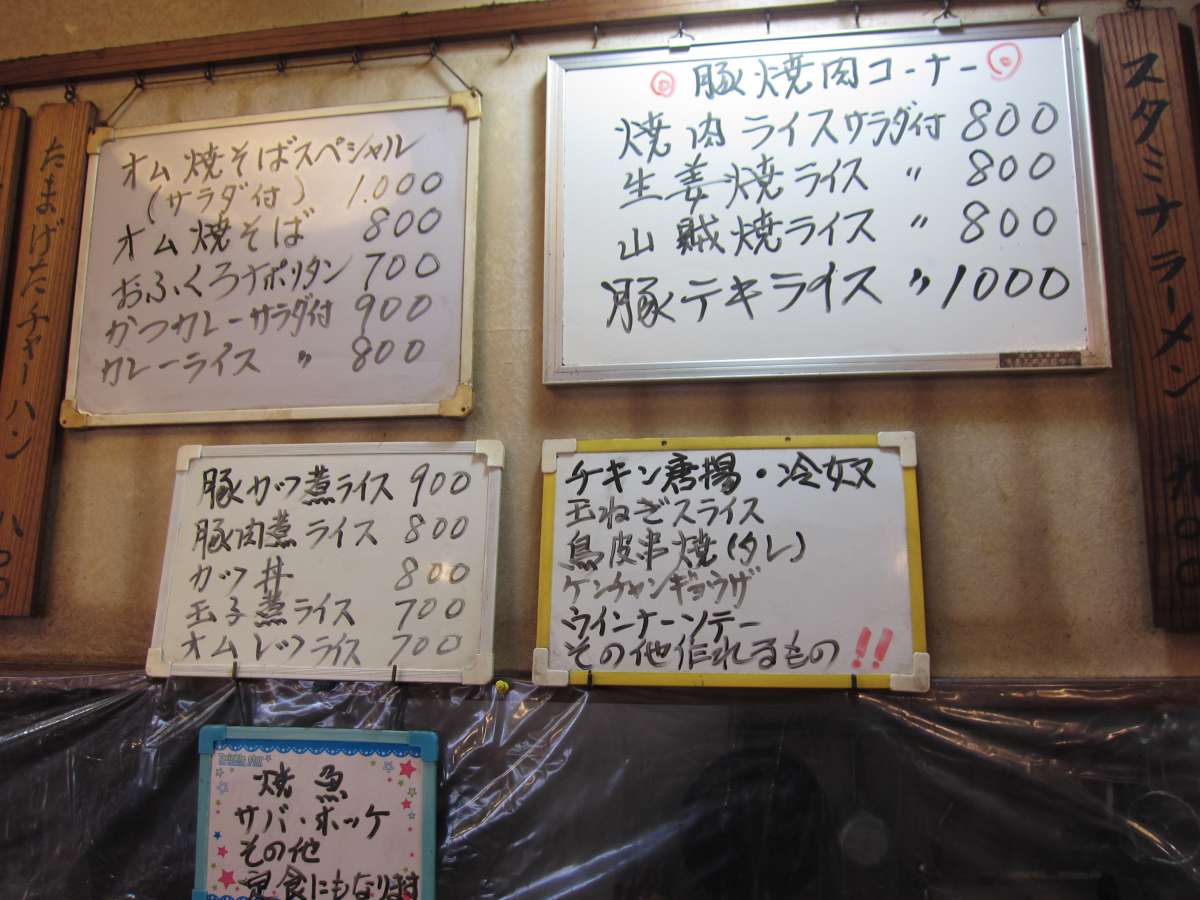 たまげたチャーハン 八00
オム焼そばスペシャル
(サラダ付) 1.000
オム焼そば 800
おふくろナポリタン 700
かつカレーサラダ付 900
カレーライス 〃 800
豚焼肉コーナー
焼肉ライスサラダ付 800
生姜焼ライス 〃 800
山賊焼ライス 〃 800
豚テキライス 〃 1000
スタミナラーメン
豚カツ煮ライス 900
豚肉煮ライス 800
カツ丼 800
玉子煮ライス 700
オムレツライス 700
チキン唐揚・冷奴
玉ねぎスライス
鳥皮串焼(タレ)
ケンチャンギョウザ
ウインナーソテー
その他作れるもの!!
焼魚
サバ・ホッケ
その他
定食にもなります